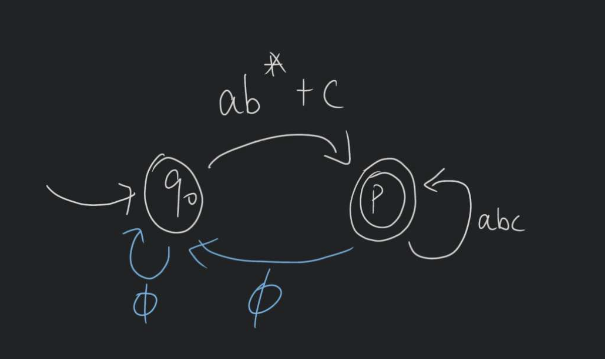 ab* + c
q₀
p
abc
ϕ
ϕ